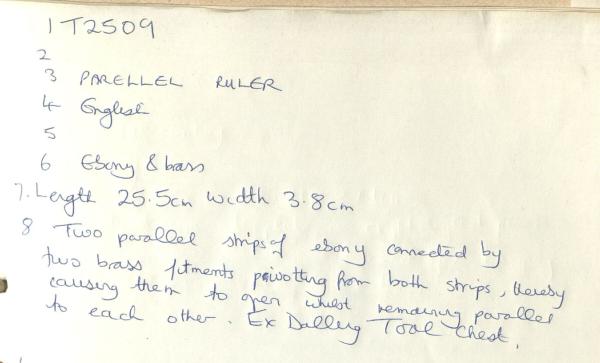 1 T2509
2
3 PARELLEL RULER
4 English
5
6 Ebony & brass
7. Length 25.5cm width 3.8cm
8 Two parallel strips of ebony connected by
two brass fitments pivotting from both strips, thereby
causing them to open whilst remaining parallel
to each other. Ex Dalling Tool Chest.